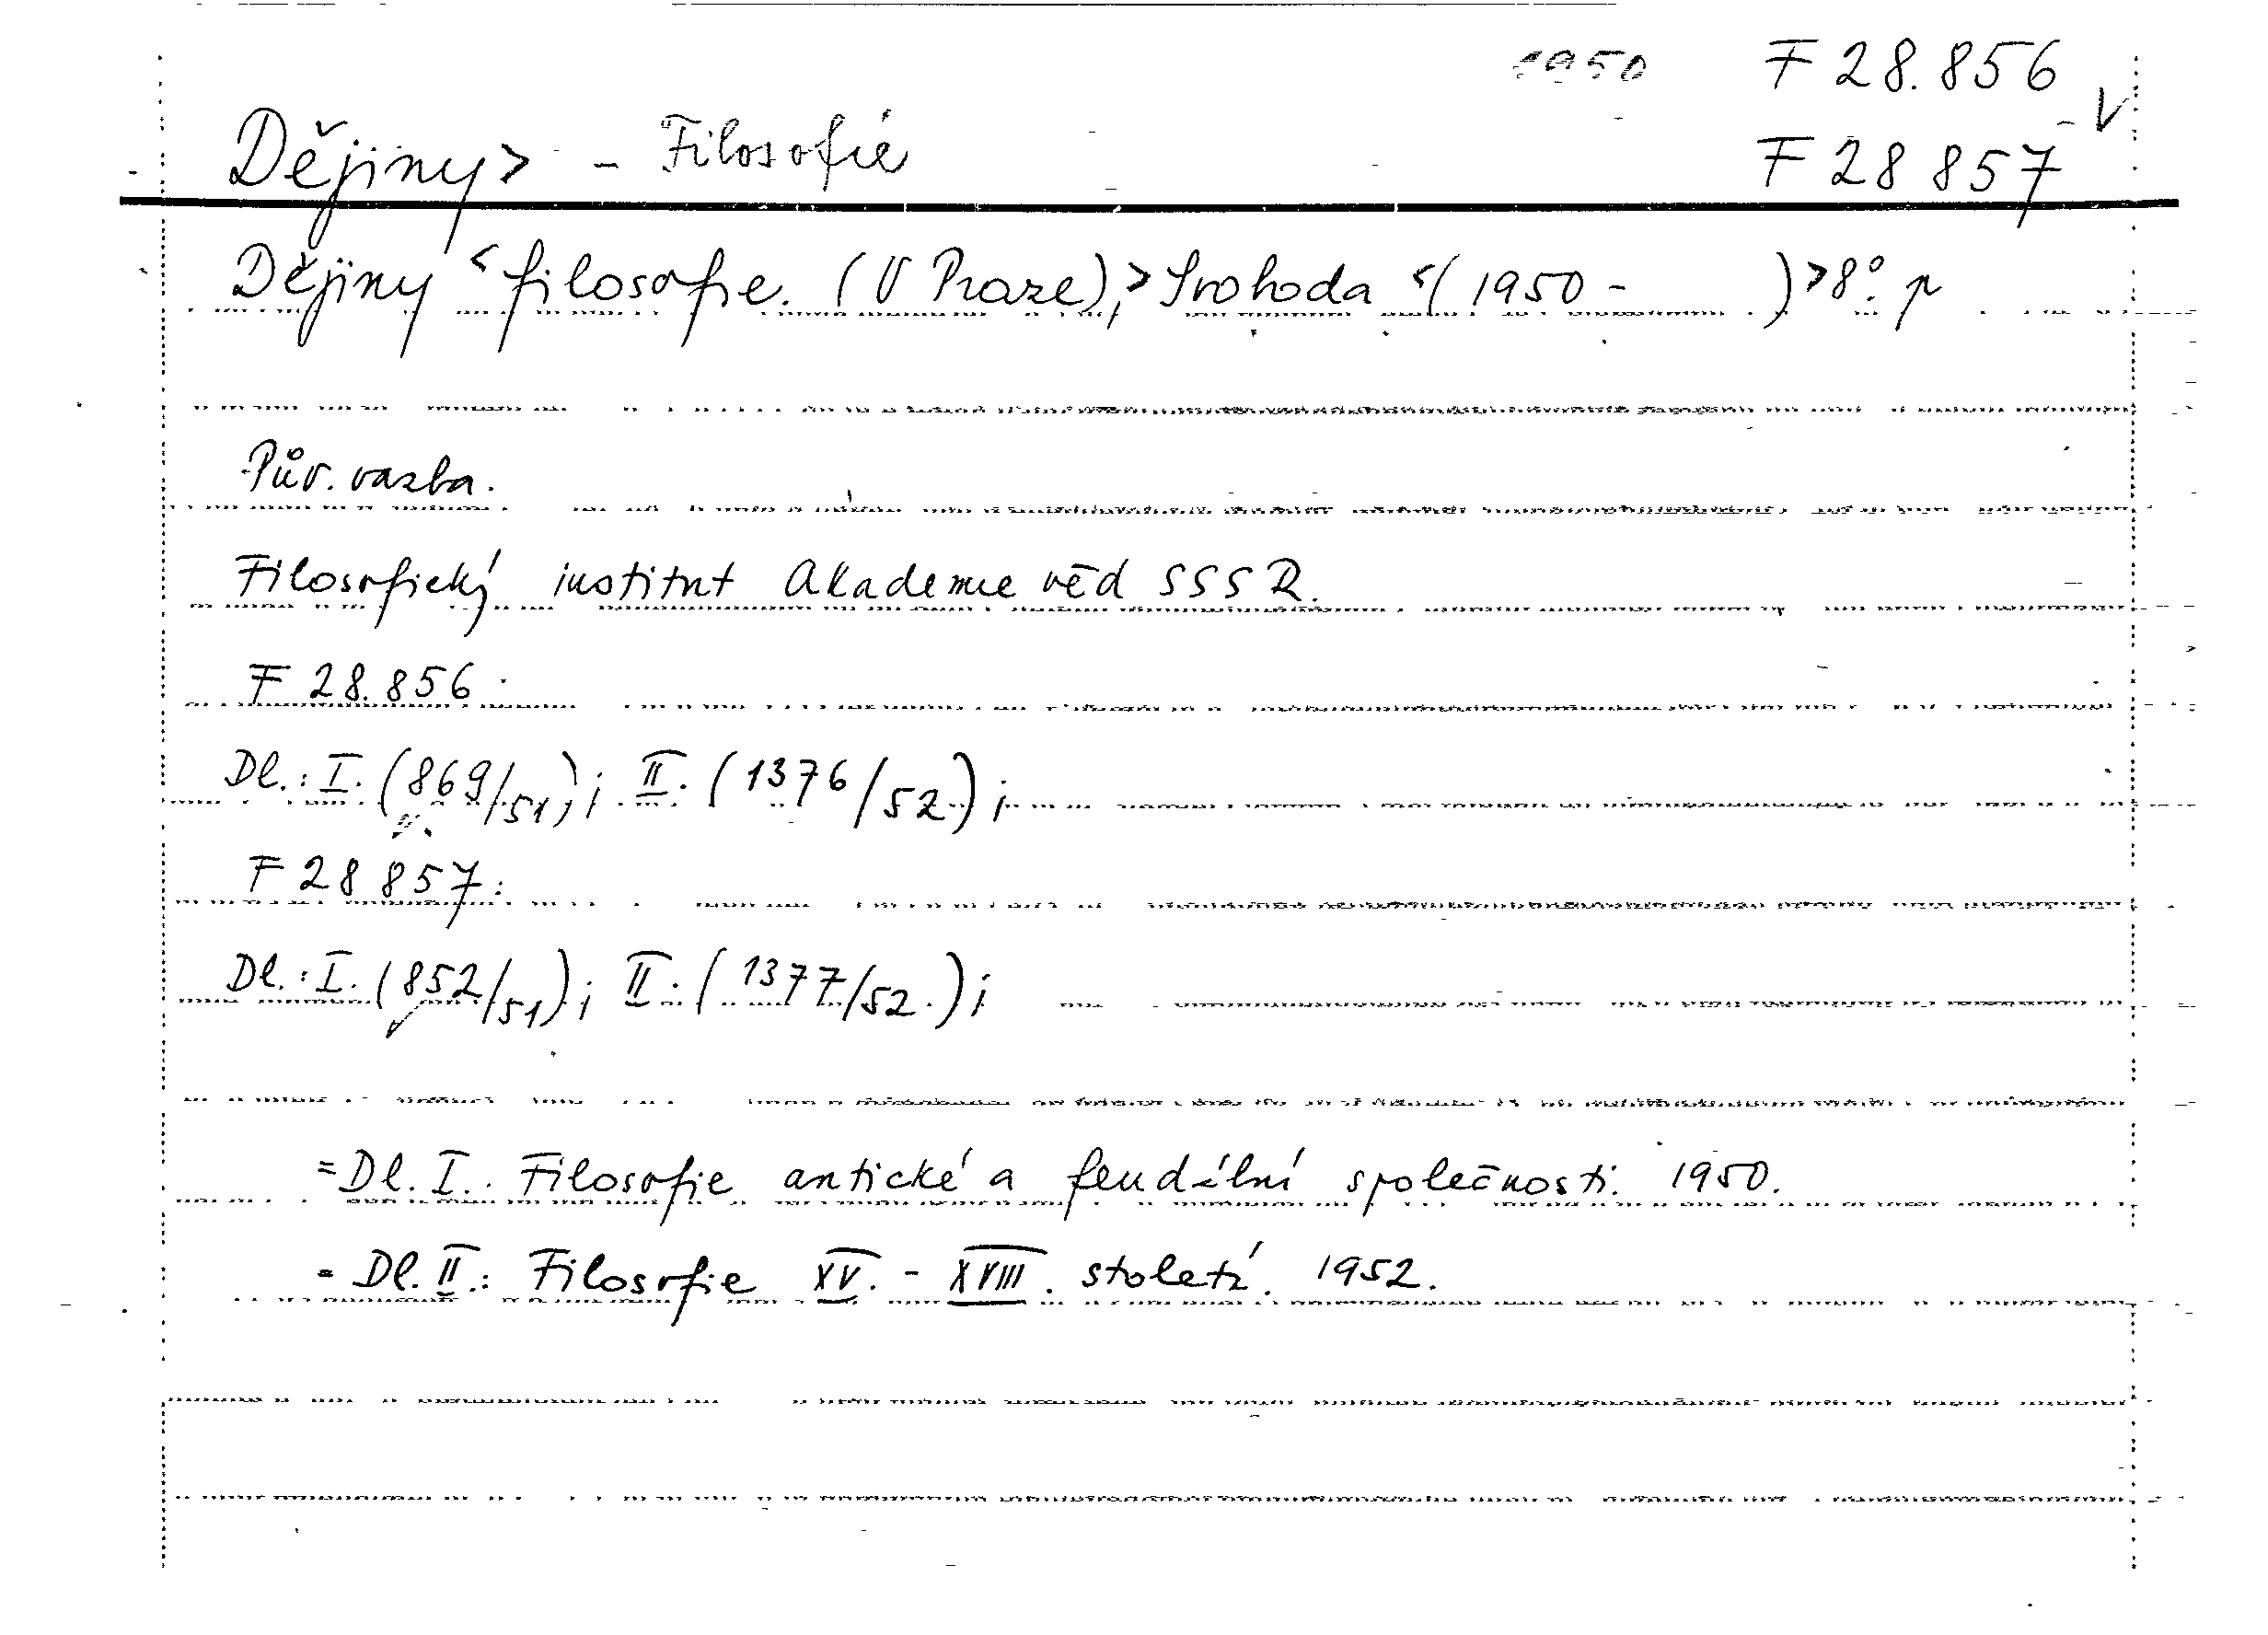 1950 F 28.856
Dějiny> - Filosofie F 28 857 V
Dějiny <filosofie. (V Praze),> Svoboda <(1950 - )>8° p
Pův. vazba.
Filosofický institut Akademie věd SSSR.
F 28.856:
Dl.: I. (869/51); II. (1376/52);
F 28 857:
Dl.: I. (852/51); II. (1377/52.);
=Dl. I.: Filosofie antické a feudální společnosti. 1950.
= Dl. II.: Filosofie XV. - XVIII. století. 1952.